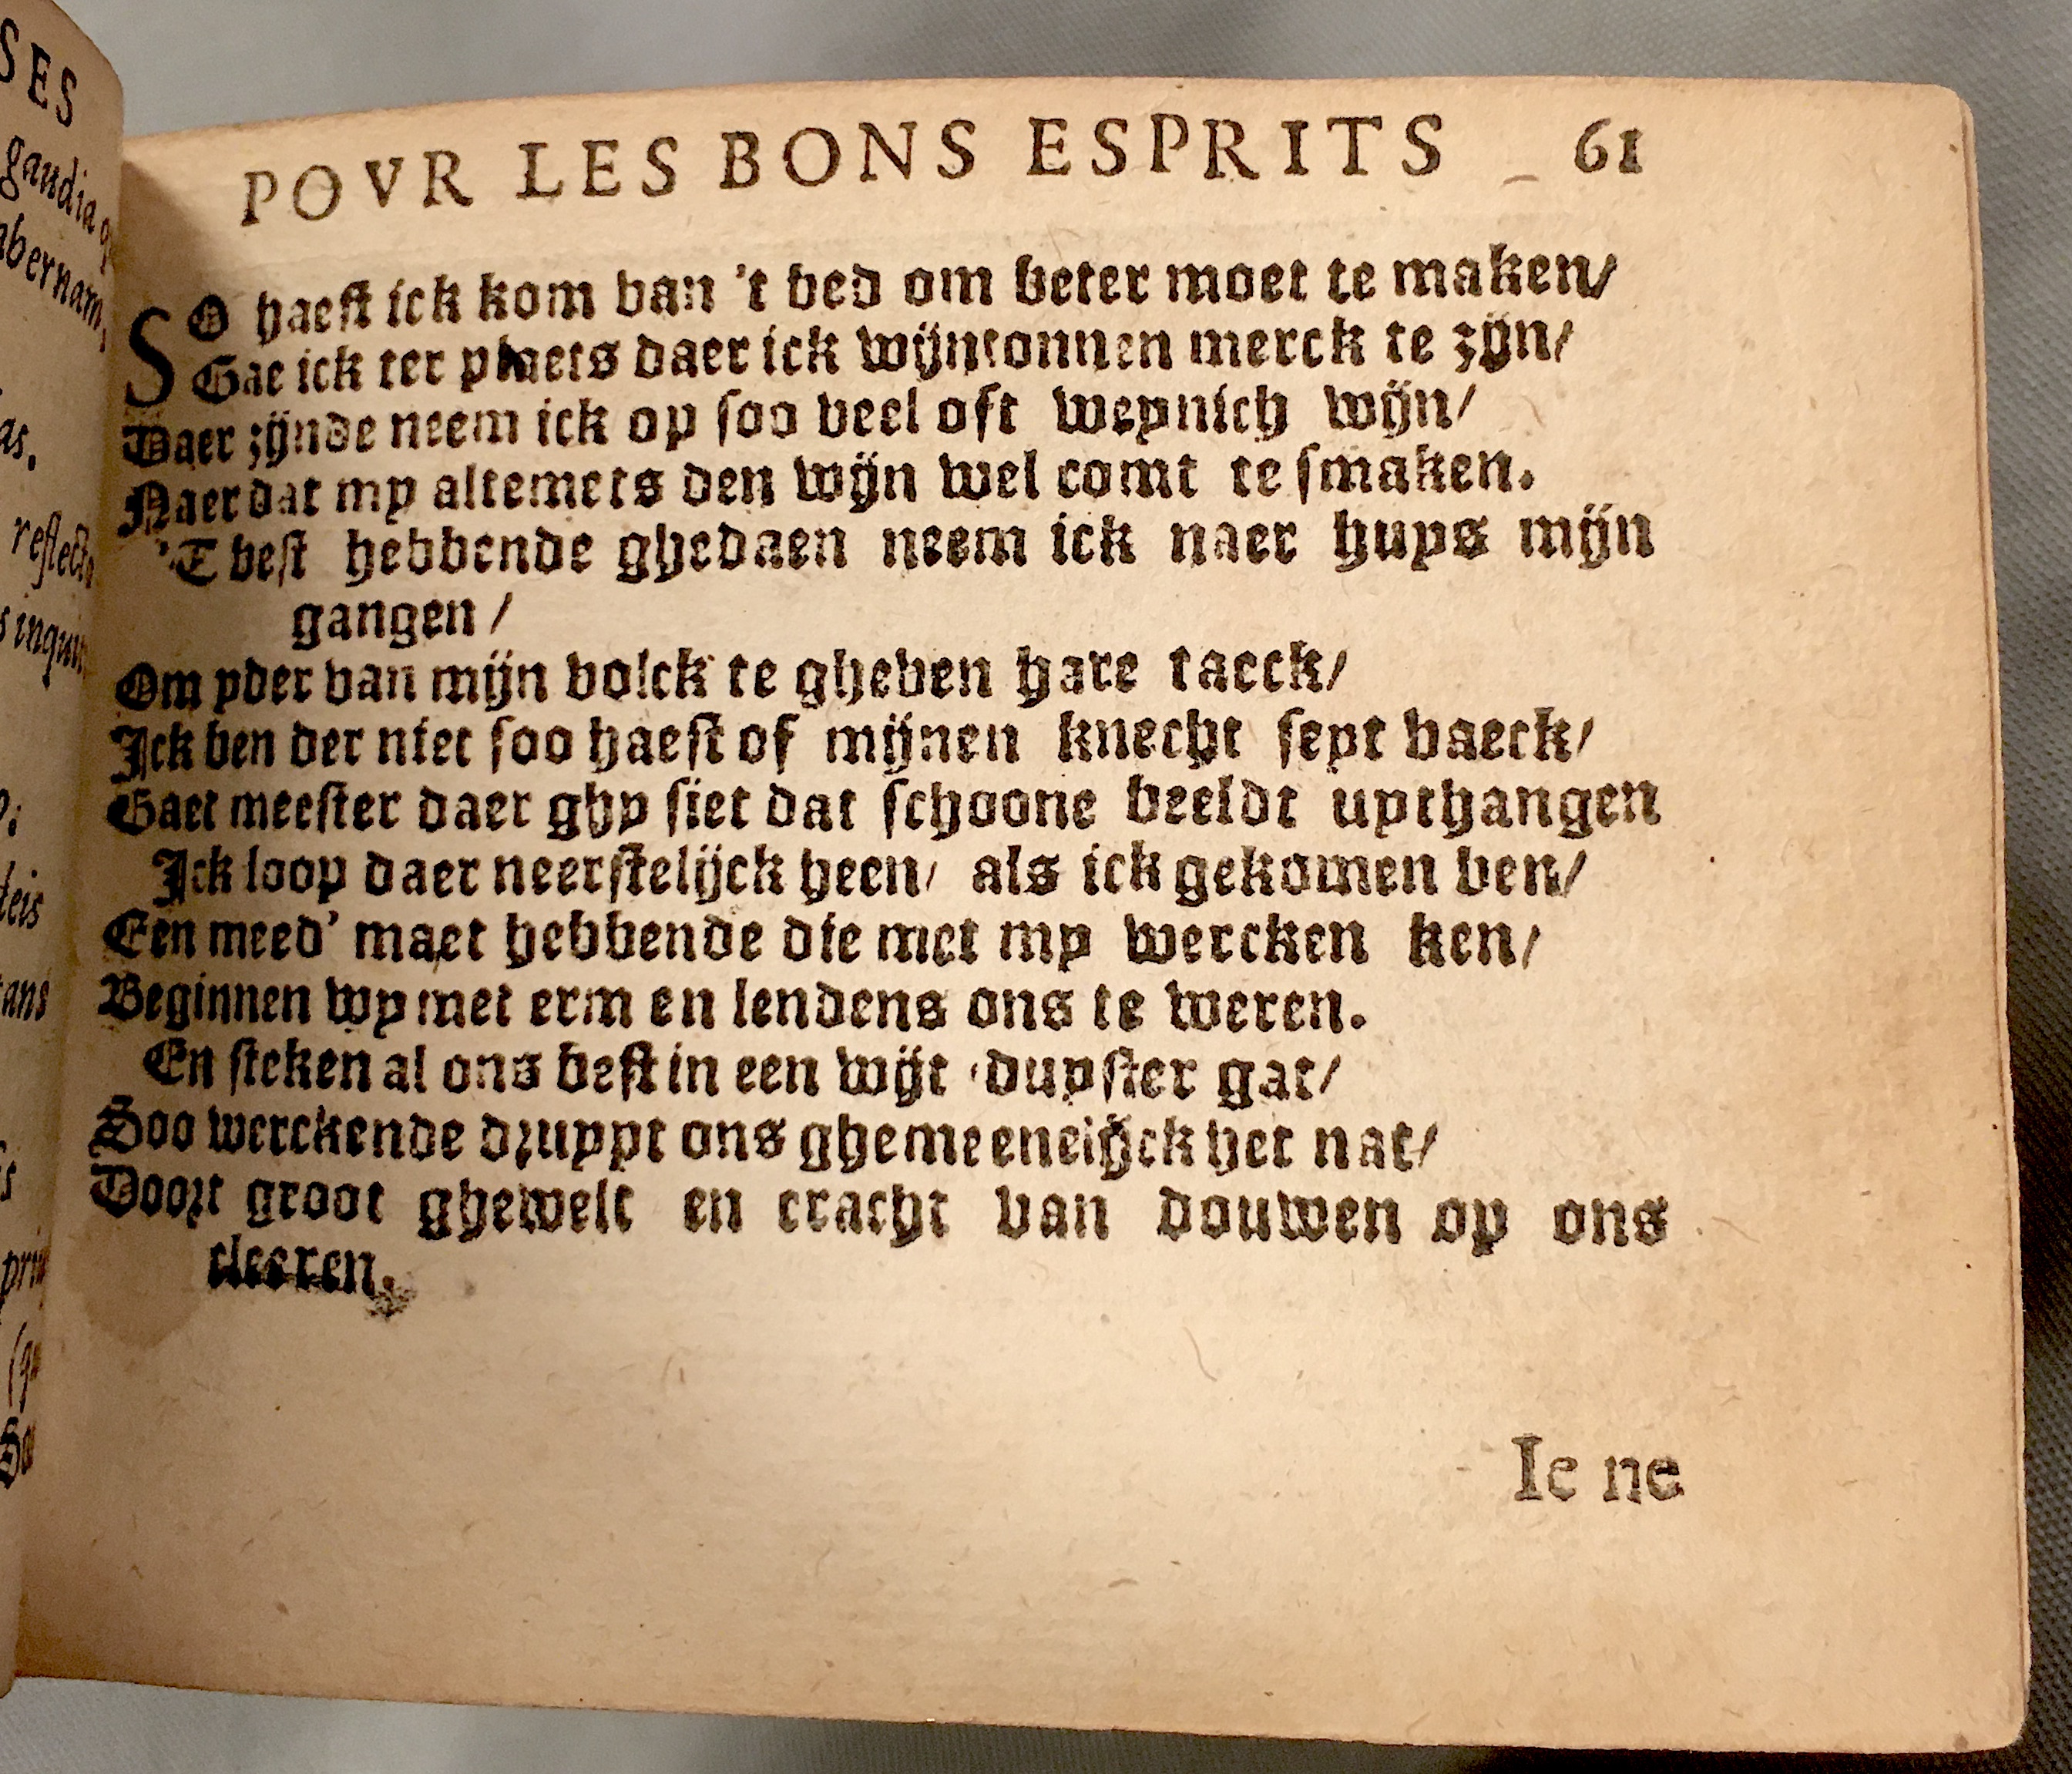 POVR LES BONS ESPRITS 61
SO haest ick kom van 't bed om beter moet te maken/
Gae ick ter plaets daer ick wijntonnen merck te zijn/
Daer zijnde neem ick op soo veel oft weynich wijn/
Naerdat my altemets den wijn wel comt te smaken.
'T best hebbende ghedaen neem ick naer huys mijn
gangen/
Om yder van mijn volck te gheven hare taeck/
Ick ben der niet soo haest of mijnen knecht seyt vaeck/
Gaet meester daer ghy siet dat schoone beeldt uythangen
Ick loop daer neerstelijck heen/ als ick gekomen ben/
Een meed' maet hebbende die met my wercken ken/
Beginnen wy met erm en lendens ons te weren.
En steken al ons best in een wijt duyster gat/
Soo werckende druppt ons ghemeeneijck het nat/
Doort groot ghewelt en cracht van douwen op ons
cleeren.
Ie ne
SES
gaudia
abernam,
as.
reflect
inqui
deis
tans